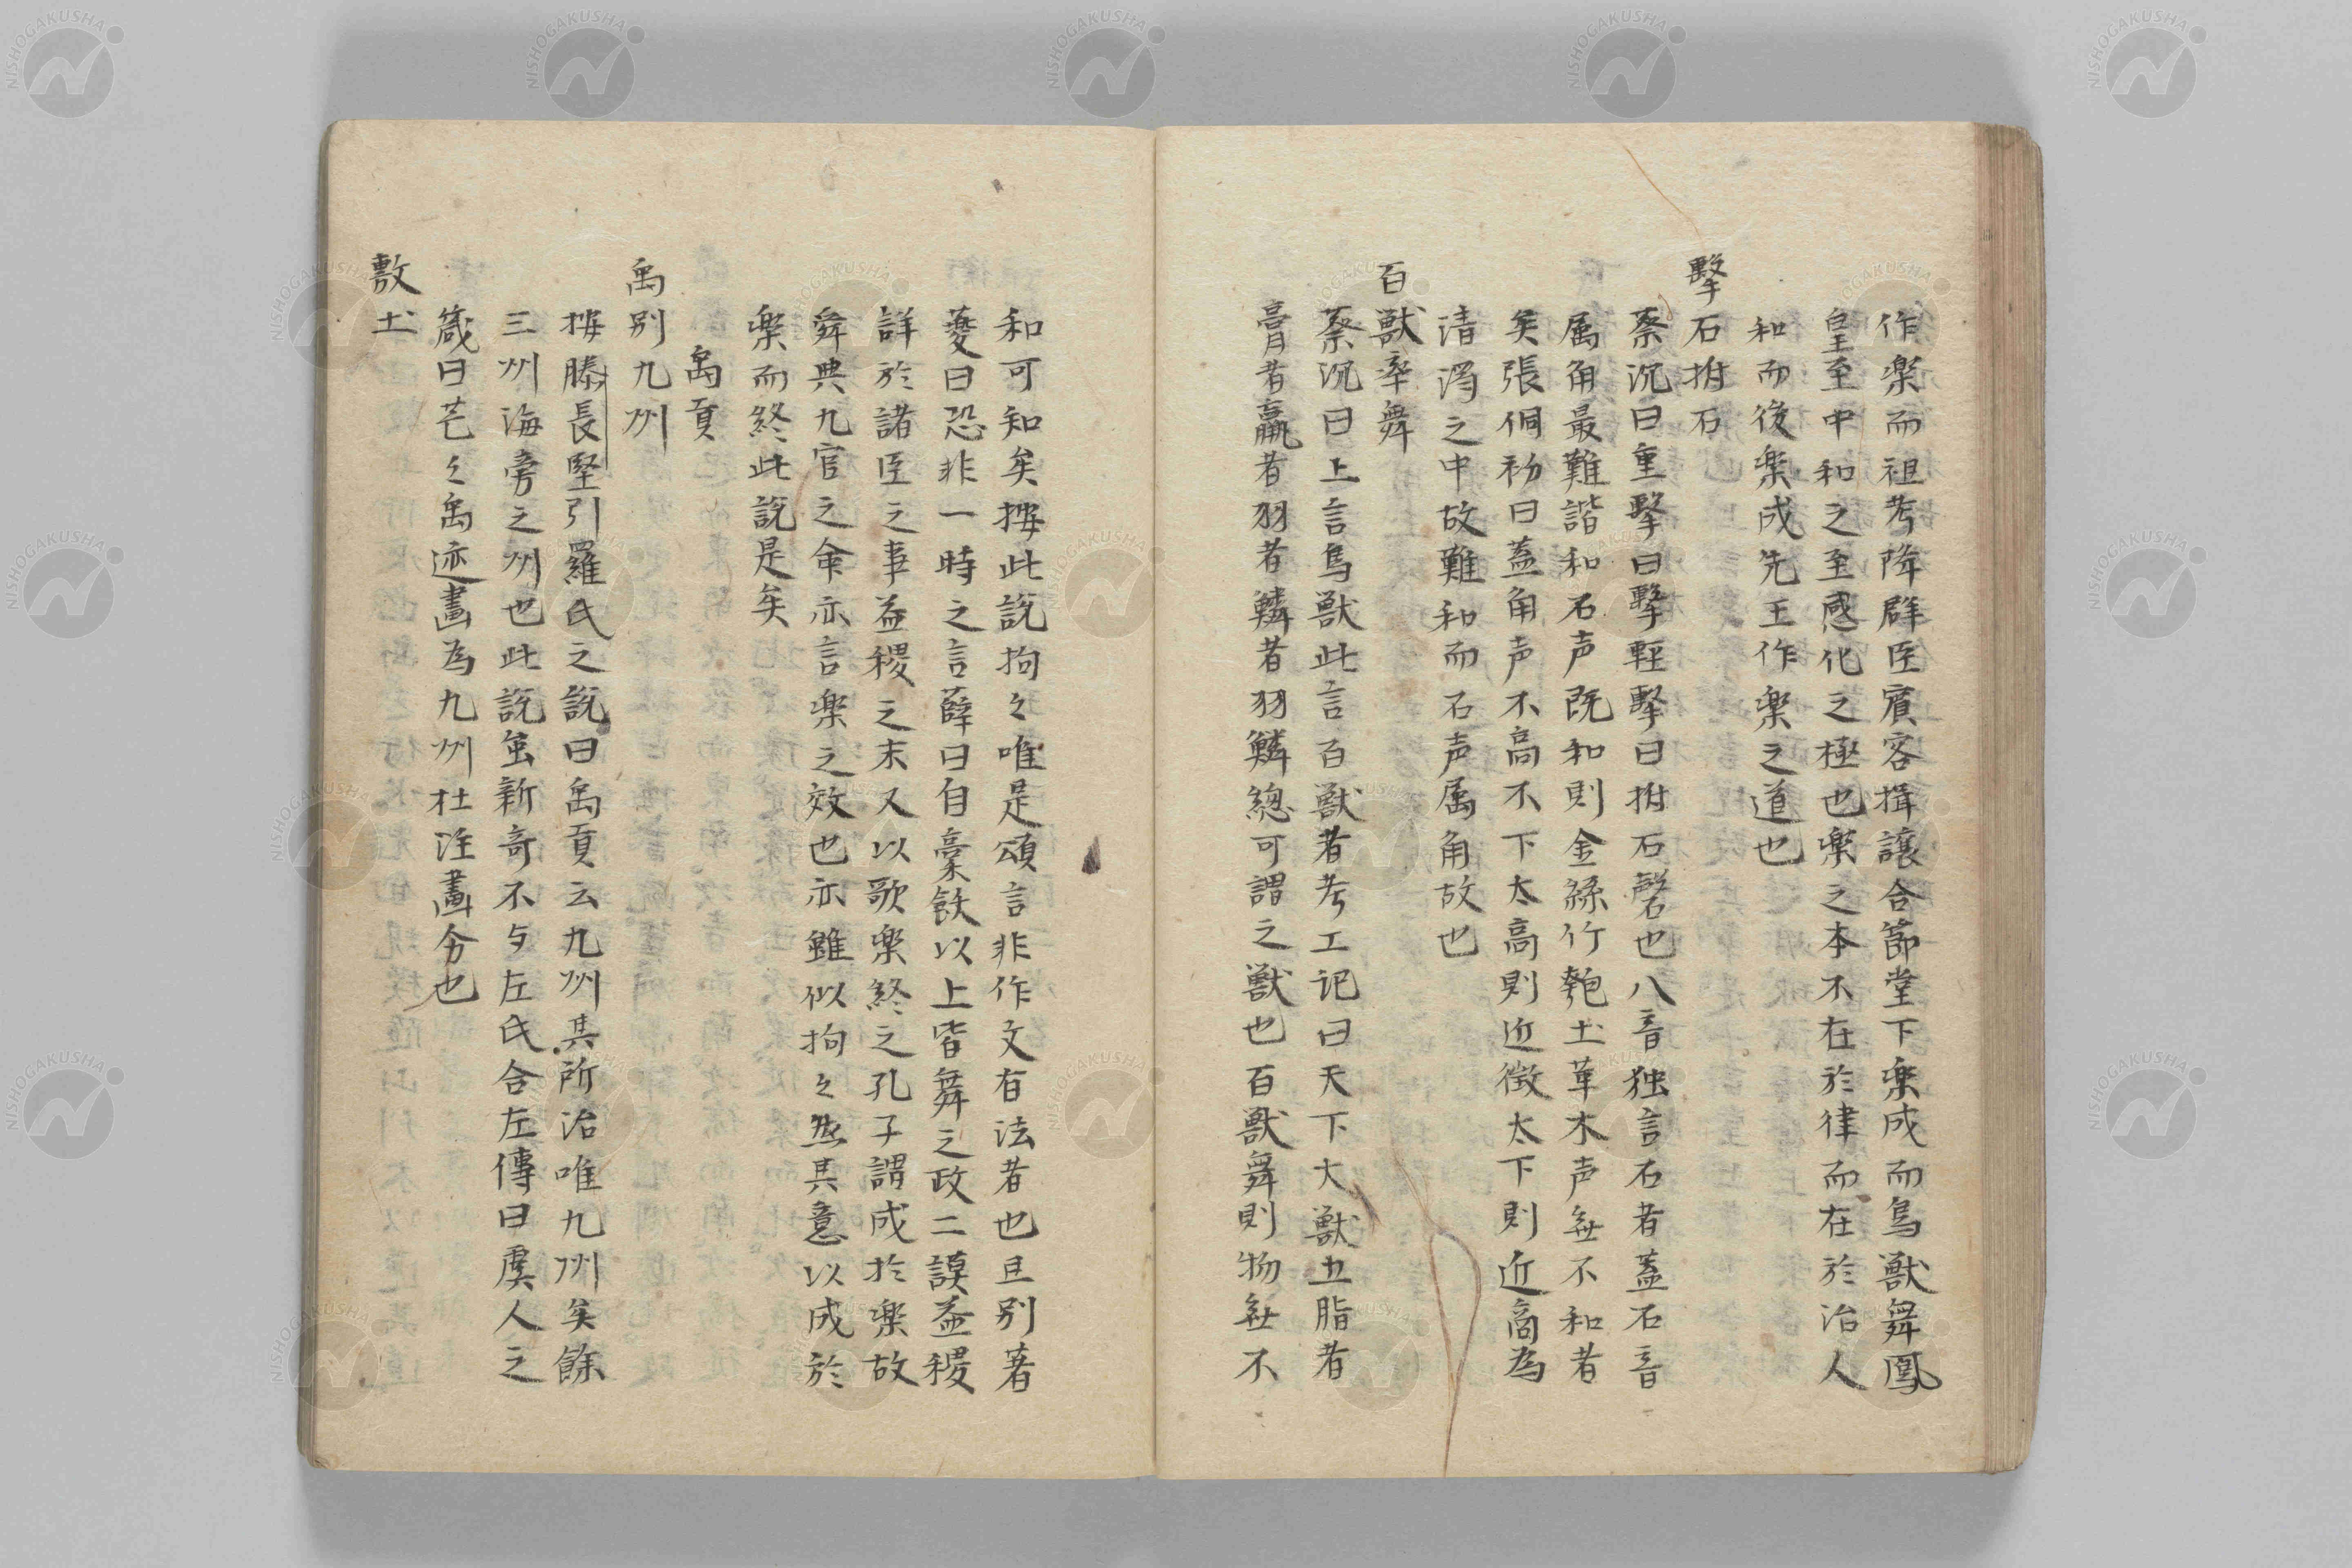 作楽而祖考降群臣賓客揖譲合節堂下楽成而鳥獣舞鳳
皇至中和之至感化之極也楽之本不在於律而在於治人
和而後楽成先王作楽之道也
擊石拊石
蔡沉曰重擊曰擊輕擊曰拊石磬也八音独言石者蓋石音
属角最難諧和石声既和則金絲竹匏土革木声無不和者
矣張侗初曰蓋角声不高不下太高則近徴太下則近商為
清濁之中故難和而石声属角故也
百獣率舞
蔡沉曰上言鳥獣此言百獣者考工记曰天下大獣五脂者
膏者臝者羽者鱗者羽鱗總可謂之獣也百獣舞則物無不
和可知矣按此説拘々唯是頌言非作文有法者也且别著
夔曰恐非一時之言薛曰自稾飫以上皆舜之政二謨益稷
詳於諸臣之事益稷之末又以歌楽終之孔子謂成於楽故
舜典九官之命亦言楽之效也亦雖似拘々然其意以成於
楽而終此説是矣
禹貢
禹别九州
按滕長堅引羅氏之説曰禹貢云九州其所治唯九州矣餘
三州海旁之州也此説虽新奇不与左氏合左傳曰虞人之
箴曰芒々禹迹畫為九州杜注畫分也
敷土
NISHOGAKUSHA